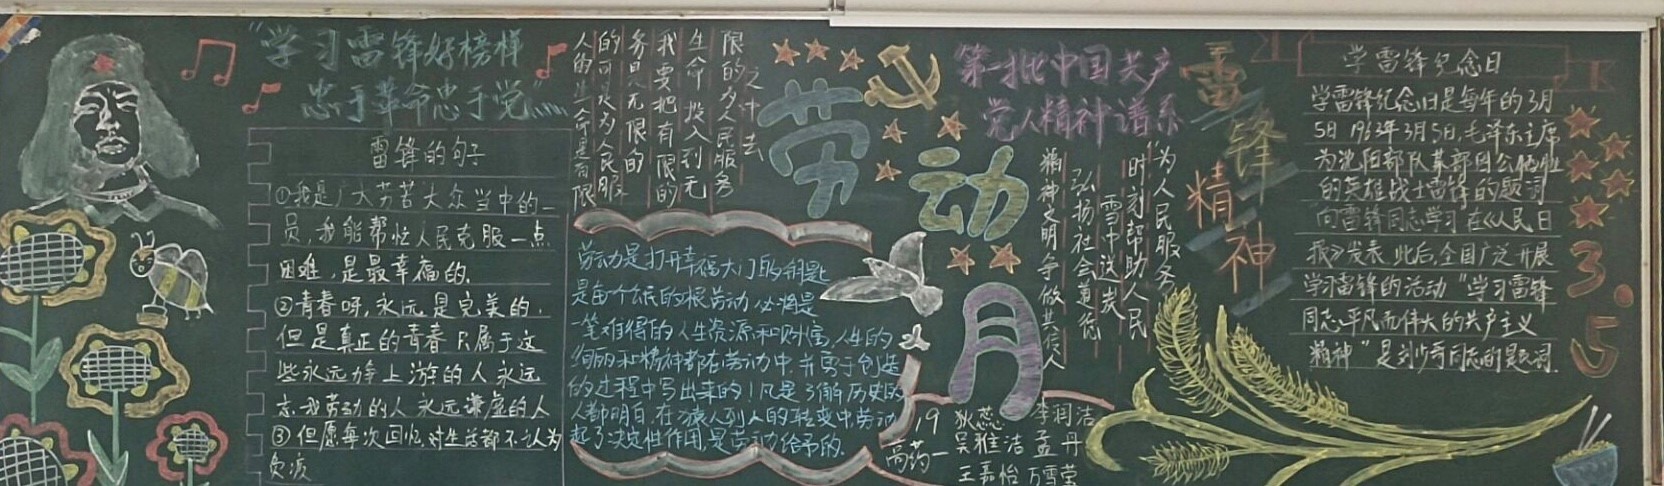 "学习雷锋好榜样
忠于革命忠于党"
雷锋的句子
①我是广大劳苦大众当中的一
员，我能帮忙人民克服一点
困难，是最幸福的.
②青春呀，永远是完美的，
但是真正的青春只属于这
些永远力争上游的人永远
忘我劳动的人永远谦虚的人
③但愿每次回忆对生活都不认为
负疚
人的生命是有限
的可是为人民服
务是无限的
我要把有限的
生命投入到无
限的为人民服务
之中去
劳动月
劳动是打开幸福大门的钥匙
是每个公民的根劳动必将是
一笔难得的人生资源和财富人生的
绚丽和精神都在劳动中并勇于创造
的过程中写出来的！凡是了解历史的
人都明白,在猿人到人的转变中劳动
起了决定性作用,是劳动给予的.
第一批中国共产
党人精神谱系
为人民服务
时刻帮助人民
雪中送炭
弘扬社会道德
精神文明争做其传人
19
高药一
狄蕊 李润洁
吴雅洁 孟丹
王嘉怡 万雪莹
雷锋
精神
学雷锋纪念日
学雷锋纪念日是每年的3月
5日 1963年3月5日,毛泽东主席
为沈阳部队某部因公牺牲
的英雄战士雷锋的题词
向雷锋同志学习"在《人民日
报》发表.此后,全国广泛开展
学习雷锋的活动"学习雷锋
同志平凡而伟大的共产主义
精神"是刘少奇同志的题词.
3.5